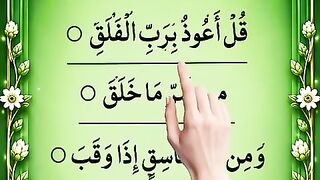 قُلْ أَعُوذُ بِرَبِّ الْفَلَقِ ○
مَا خَلَقَ ○
وَمِن إِذَا وَقَبَ ○